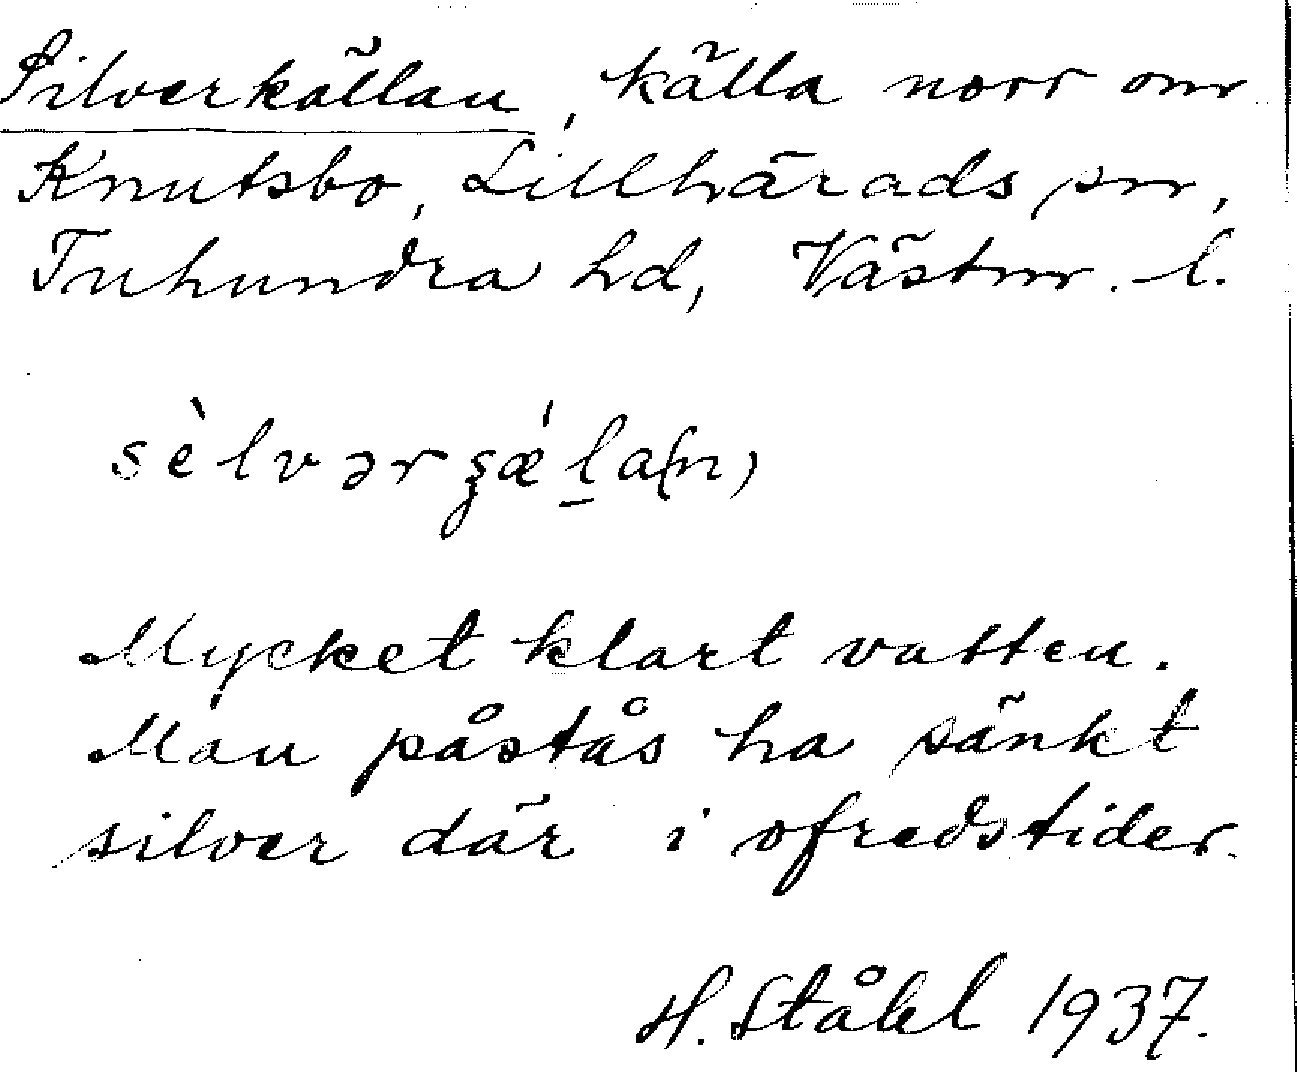 Silverkällan, källa norr om
Knutsbo, Lillhärads sn,
Tuhundra hd, Västm. l.
sèlvərʂǽḻa(n)
Mycket klart vatten.
Man påstås ha sänkt
silver där i ofredstider.
H. Ståhl 1937.